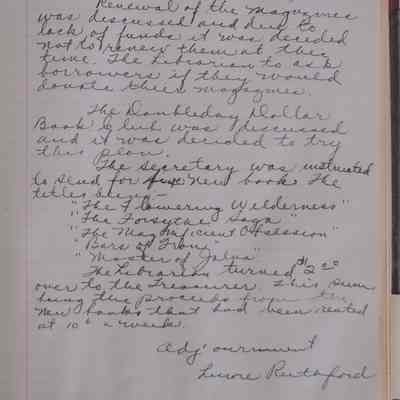 Renewal of the magazines
was discussed and due to
lack of funds it was decided
not to renew them at this
time. The Librarian to ask
borrowers if they would
donate their magazines.
The Doubleday Dollar
Book Club was discussed
and it was decided to try
this plan.
The Secretary was instructed
to send for five New books. The
titles being -
"The Flowering Wilderness"
"The Forsythe Saga"
"The Magnificient Obsession"
"Bars of Iron"
"Master of Jalna"
The Librarian turned $2.00
over to the Treasurer. This sum
being the proceeds from the
New books that had been rented
at 10¢ a week.
Adjournment
Rutherford